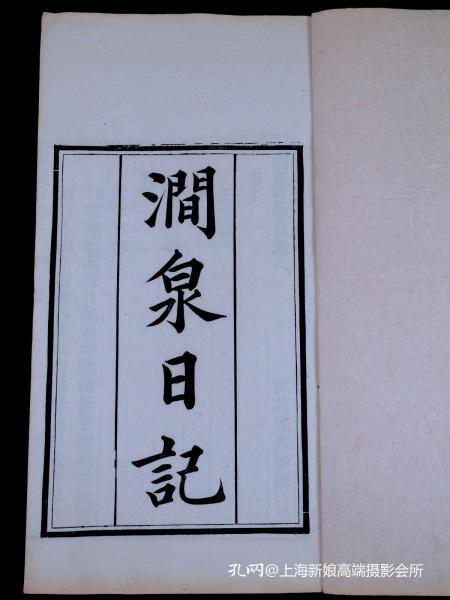 澗泉日記
孔网@上海新娘高端摄影会所